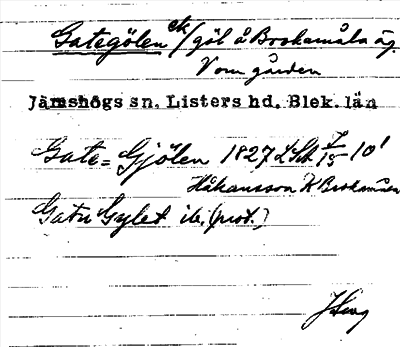 Gategölen ek/göl å Brokamåla äg.
V om gården
Jämshögs sn. Listers hd. Blek. län
Gate=Gjölen 1827 LSk 10'
Håkansson K Brokamåla
Gatu Gylet ib. (prot.)